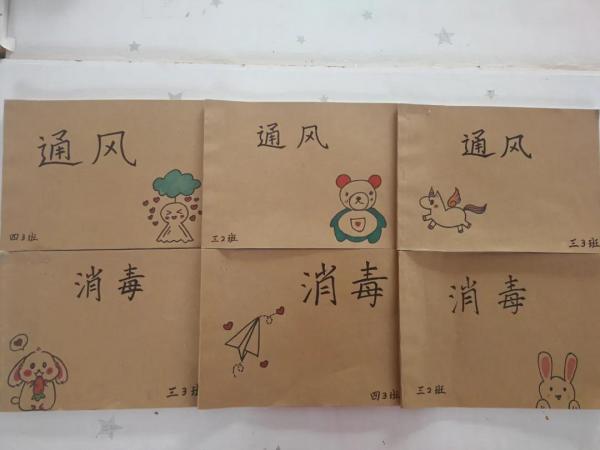 通风
四3班
通风
三2班
通风
三3班
消毒
三3班
消毒
四3班
消毒
三2班